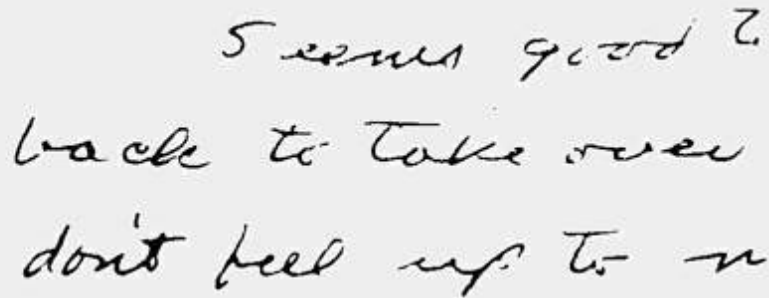 Seems good
back to take over
don't feel up to